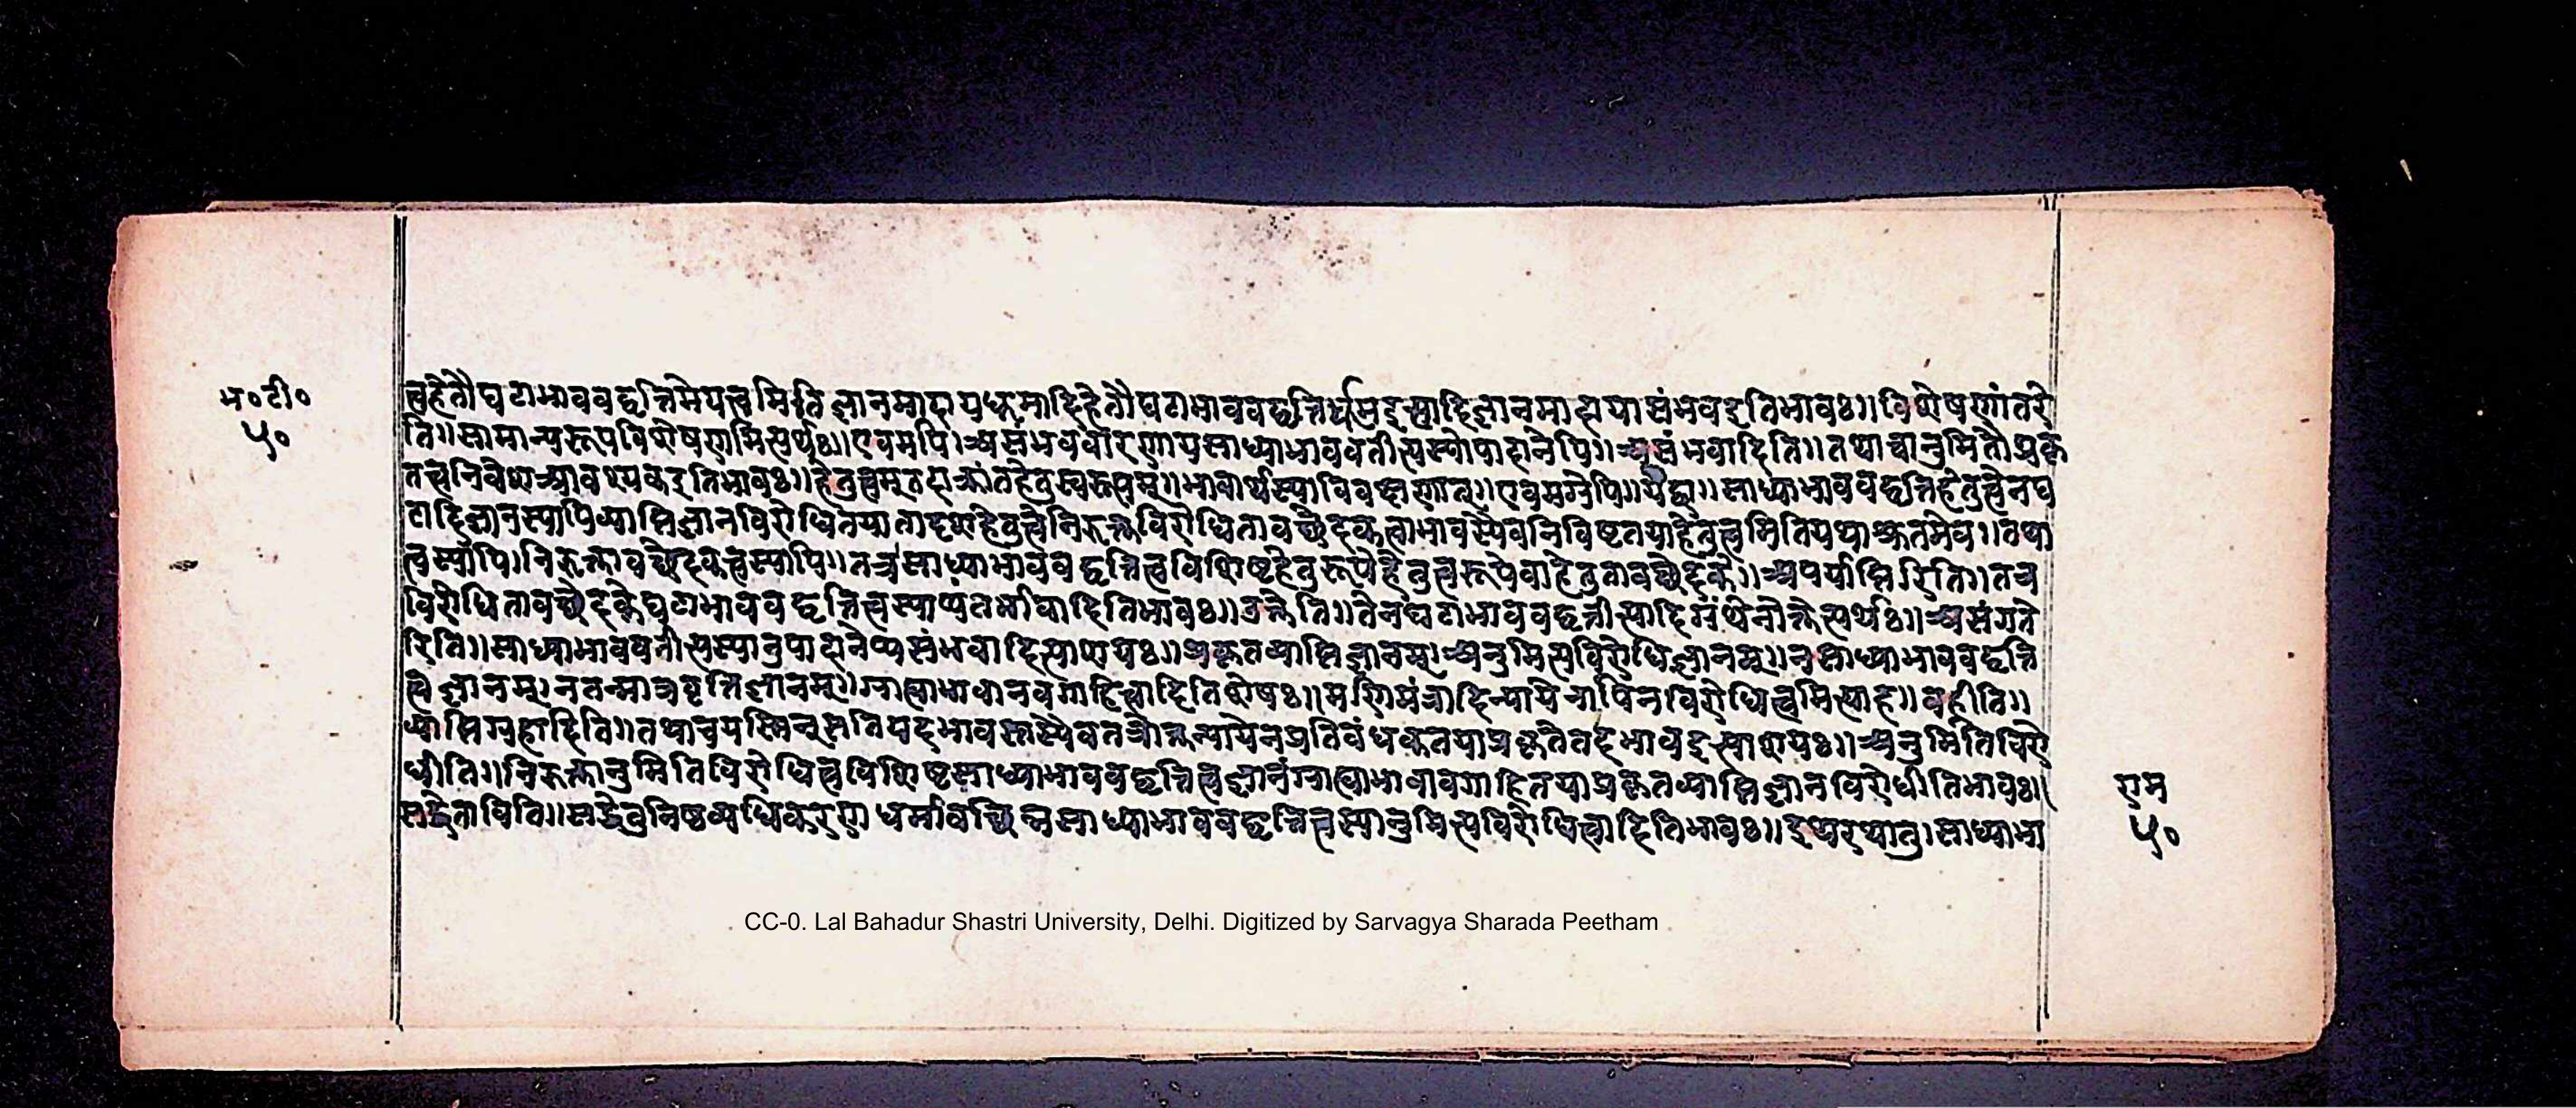 भ॰टी॰
५०
त्वहेतौघटाभाववद्वृत्तिमेयत्वमितिज्ञानमादायधूमादिहेतौघटाभाववद्वृत्तिर्धूमइत्यादिज्ञानमादायासंभवइतिभावः॥विशेषणांतरे
ति॥सामान्यरूपविशेषणमित्यर्थः॥एवमपि।असंभववारणायसाध्याभाववतीत्यस्योपादानेपि॥असंभवादिति॥तथाचानुमितौप्रकृ
तत्वनिवेशआवश्यकइतिभावः॥हेतुत्वमुतदाक्रांतहेतुस्वरूपम्॥भावार्थस्याविवक्षणात्॥एवमग्रेपि॥यद्वा॥साध्याभाववद्वृत्तिहेतुत्वेनघ
टादिज्ञानस्यापिव्याप्तिज्ञानविरोधितयातादृशहेतुत्वेनिरुक्तविरोधितावच्छेदकत्वाभावस्यैवनिविष्टतयाहेतुत्वमितियथाश्रुतमेव॥तथा
त्वस्यापि।निरुक्तावच्छेदकत्वस्यापि॥तच्चसाध्याभाववद्वृत्तित्वविशिष्टहेतुरूपेहेतुत्वरूपेवाहेतुतावच्छेदके॥अपर्याप्तिरिति॥तच
विरोधितावच्छेदकेघटाभाववद्वृत्तित्वस्याप्यंतर्भावादितिभावः॥उक्तेति॥तेनघटाभाववद्वृत्तीत्यादिग्रंथेनोक्तेत्यर्थः॥असंगते
रिति॥साध्याभाववतीत्यस्यानुपादानेप्यसंभवादित्याशयः॥प्रकृतव्याप्तिज्ञानम्।अनुमित्यविरोधिज्ञानम्॥नसाध्याभाववद्वृत्ति
त्वज्ञानम्।नतन्मात्रवृत्तिज्ञानम्॥ग्राह्याभावानवगाहित्वादितिशेषः॥मणिमंत्रादिन्यायेनापिनविरोधित्वमित्याह॥नहीति॥
व्याप्तिग्रहादिति॥तथाचयस्मिन्सतियदभावस्तस्यैवतत्रोक्तन्यायेनप्रतिबंधकतयाप्रकृतेतदभावइत्याशयः॥अनुमितिविरो
धीति॥निरुक्तानुमितिविरोधित्वविशिष्टसाध्याभाववद्वृत्तित्वज्ञानंग्राह्याभावावगाहितयाप्रकृतव्याप्तिज्ञानविरोधीतिभावः॥
सद्धेताविति॥सद्धेतुनिष्ठव्यधिकरणधर्मावच्छिन्नसाध्याभाववद्वृत्तित्वस्यानुमित्यविरोधित्वादितिभावः॥इत्थंरथातु।साध्याभा
राम
५०
CC-0. Lal Bahadur Shastri University, Delhi. Digitized by Sarvagya Sharada Peetham